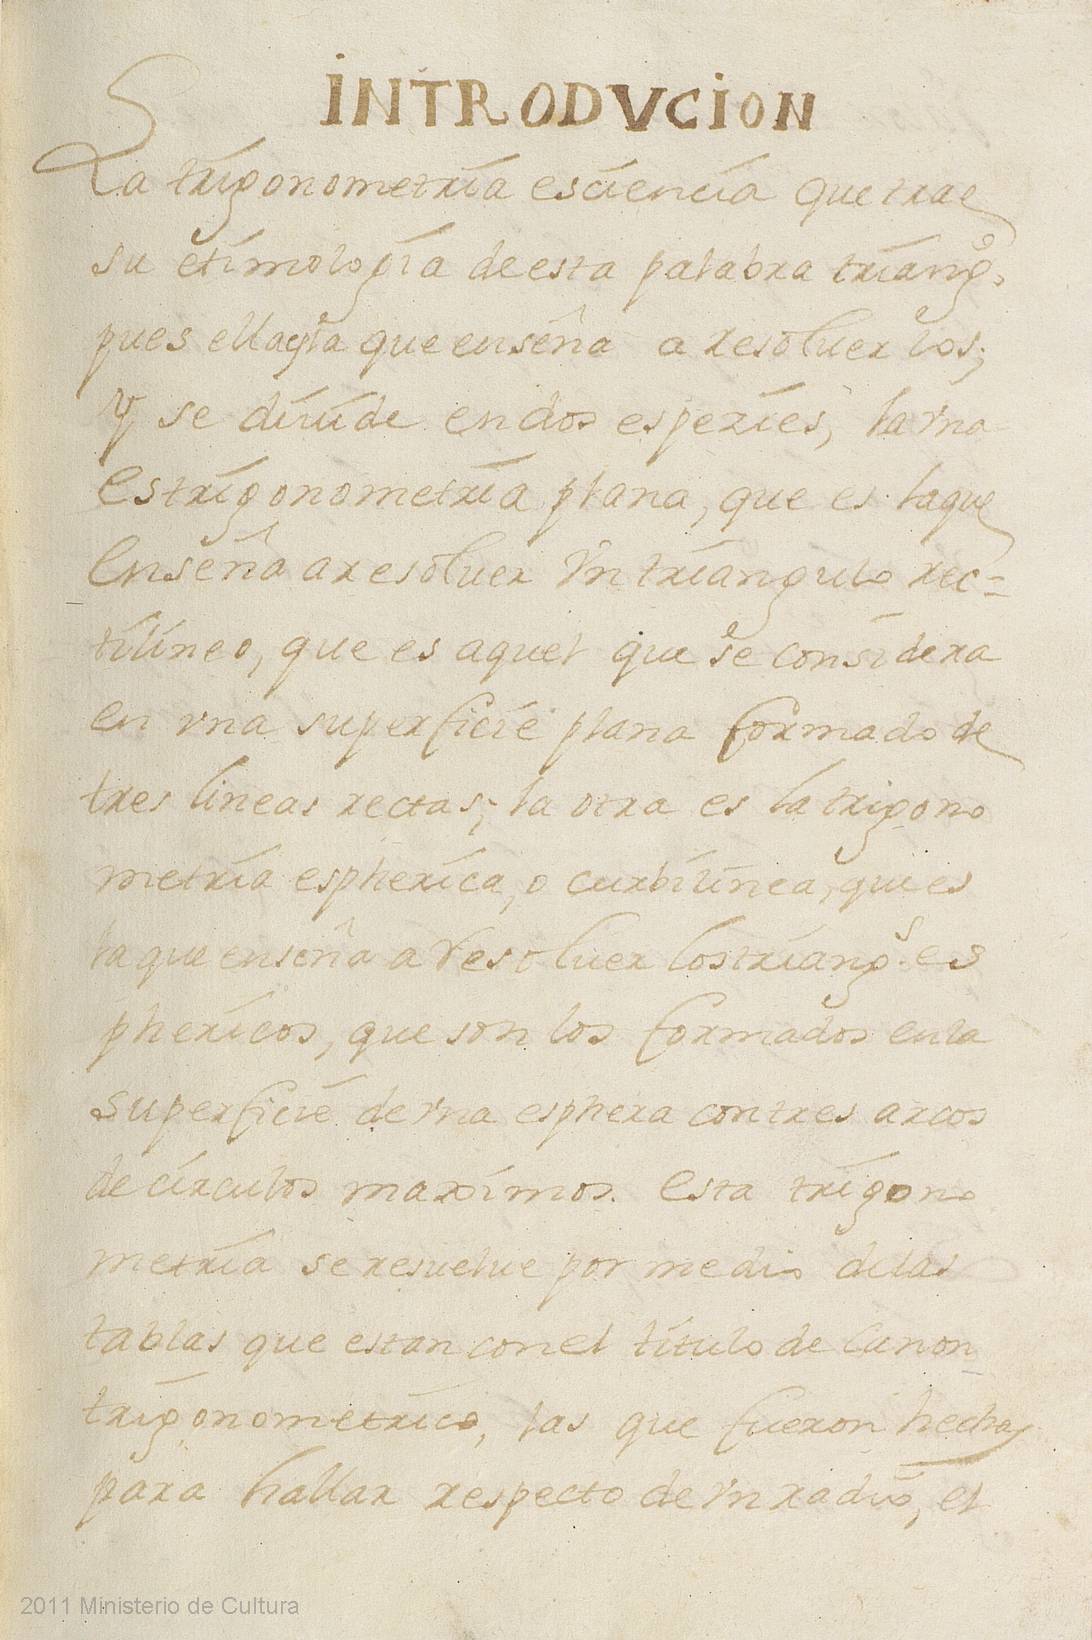 INTRODVCION
La trigonometria es ciencia que trae
su etimologia de esta palabra triangº.
pues ella es la que enseña a resolver los;
Y se diuide en dos espezies, la vna
es trigonometria plana, que es la que
enseña a resoluer vn triangulo rec=
tilineo, que es aquel que se considera
en vna superficie plana formado de
tres lineas rectas; la otra es la trigono
metria espherica, o curbilinea, que es
la que enseña a resoluer los triangˢ. es
phericos, que son los formados en la
superficie de vna esphera con tres arcos
de circulos maximos. Esta trigono
metria se resuelue por medio de las
tablas que estan con el titulo de Canon
trigonometrico, las que fueron hechas
para hallar respecto de vn radio, el
2011 Ministerio de Cultura